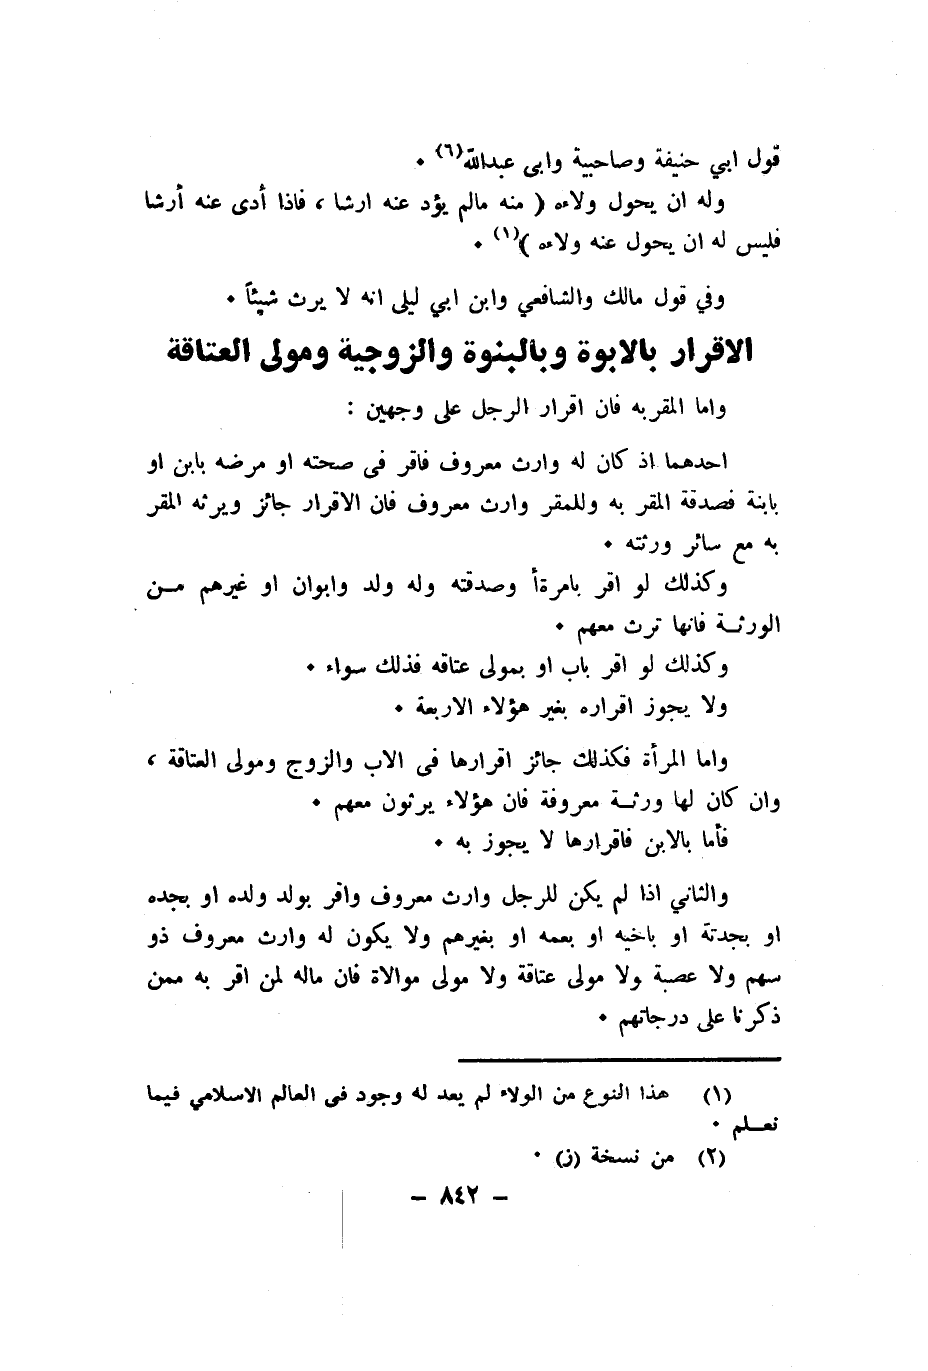 قول ابي حنيفة وصاحبية وابى عبدالله(٦) ٠
وله ان يحول ولاءه ( منه مالم يؤد عنه ارشا ، فاذا أدى عنه أرشا
فليس له ان يحول عنه ولاءه )(١) ٠
وفي قول مالك والشافعي وابن ابي ليلى انه لا يرث شيئاً ٠
الاقرار بالابوة وبالبنوة والزوجية ومولى العتاقة
واما المقربه فان اقرار الرجل على وجهين :
احدهما اذ كان له وارث معروف فاقر فى صحته او مرضه بابن او
بابنة فصدقة المقر به وللمقر وارث معروف فان الاقرار جائز ويرثه المقر
به مع سائر ورثته ٠
وكذلك لو اقر بامرةأ وصدقته وله ولد وابوان او غيرهم مــن
الورثــة فانها ترث معهم ٠
وكذلك لو اقر باب او بمولى عتاقه فذلك سواء ٠
ولا يجوز اقراره بغير هؤلاء الاربعة ٠
واما المرأة فكذلك جائز اقرارها فى الاب والزوج ومولى العتاقة ،
وان كان لها ورثــة معروفة فان هؤلاء يرثون معهم ٠
فأما بالابن فاقرارها لا يجوز به ٠
والثاني اذا لم يكن للرجل وارث معروف واقر بولد ولده او بجده
او بجدتة او باخيه او بعمه او بغيرهم ولا يكون له وارث معروف ذو
سهم ولا عصبة ولا مولى عتاقة ولا مولى موالاة فان ماله لمن اقر به ممن
ذكرنا على درجاتهم ٠
(١) هذا النوع من الولاء لم يعد له وجود فى العالم الاسلامي فيما
نعــلم ٠
(٢) من نسخة (ز) ٠
– ٨٤٢ –